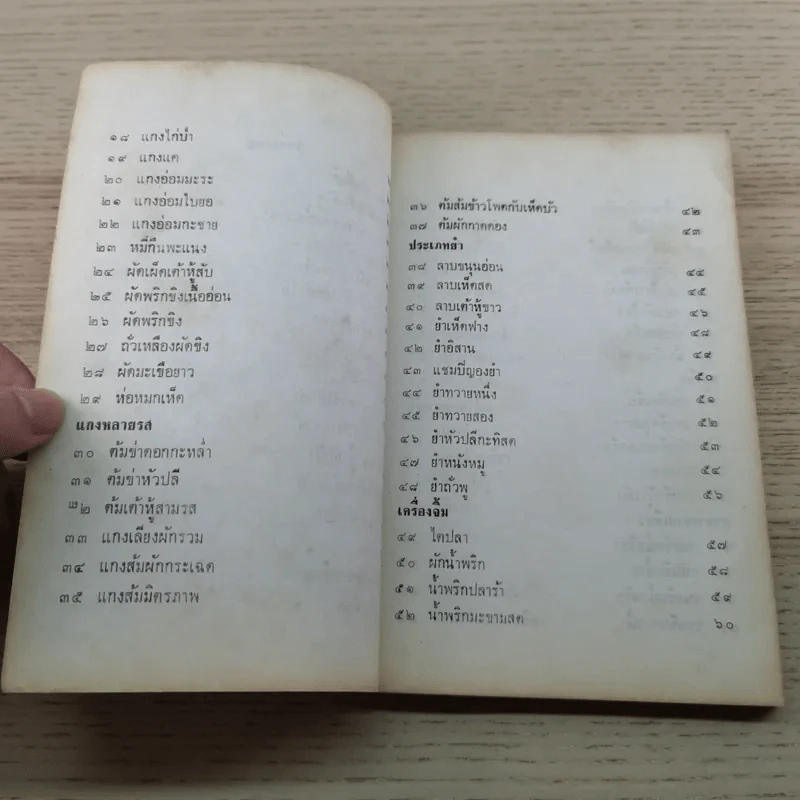 ๑๘ แกงไก่บ้า
๑๙ แกงแค
๒๐ แกงอ่อมมะระ
๒๑ แกงอ่อมใบยอ
๒๒ แกงอ่อมกะชาย
๒๓ หมี่กึนพะแนง
๒๔ ผัดเผ็ดเต้าหู้สับ
๒๕ ผัดพริกขิงเนื้ออ่อน
๒๖ ผัดพริกขิง
๒๗ ถั่วเหลืองผัดขิง
๒๘ ผัดมะเขือยาว
๒๙ ห่อหมกเห็ด
แกงหลายรส
๓๐ ต้มข่าดอกกะหล่ำ
๓๑ ต้มข่าหัวปลี
๓๒ ต้มเต้าหู้สามรส
๓๓ แกงเลียงผักรวม
๓๔ แกงส้มผักกระเฉด
๓๕ แกงส้มมิตรภาพ
๓๖ ต้มส้มข้าวโพดกับเห็ดบัว ๔๒
๓๗ ต้มผักกาดดอง ๔๓
ประเภทยำ
๓๘ ลาบขนุนอ่อน ๔๔
๓๙ ลาบเห็ดสด ๔๕
๔๐ ลาบเต้าหู้ขาว ๔๖
๔๑ ยำเห็ดฟาง ๔๘
๔๒ ยำอิสาน ๔๙
๔๓ แชมปิญองยำ ๕๐
๔๔ ยำทวายหนึ่ง ๕๑
๔๕ ยำทวายสอง ๕๒
๔๖ ยำหัวปลีกะทิสด ๕๓
๔๗ ยำหนังหมู ๕๔
๔๘ ยำถั่วพู ๕๖
เครื่องจิ้ม
๔๙ ไตปลา ๕๗
๕๐ ผักน้ำพริก ๕๘
๕๑ น้ำพริกปลาร้า ๕๙
๕๒ น้ำพริกมะขามสด ๖๐